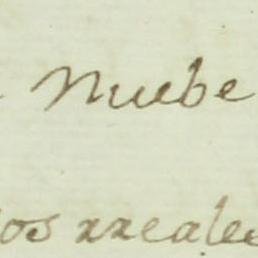 Nuebe
los rreales